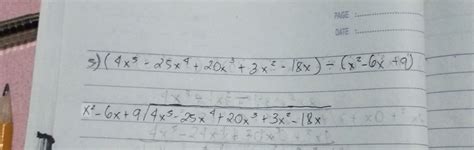 PAGE :
DATE :
5) (4x⁵ - 25x⁴ + 20x³ + 3x² - 18x) ÷ (x² - 6x + 9)
x² - 6x + 9 √4x⁵ - 25x⁴ + 20x³ + 3x² - 18x